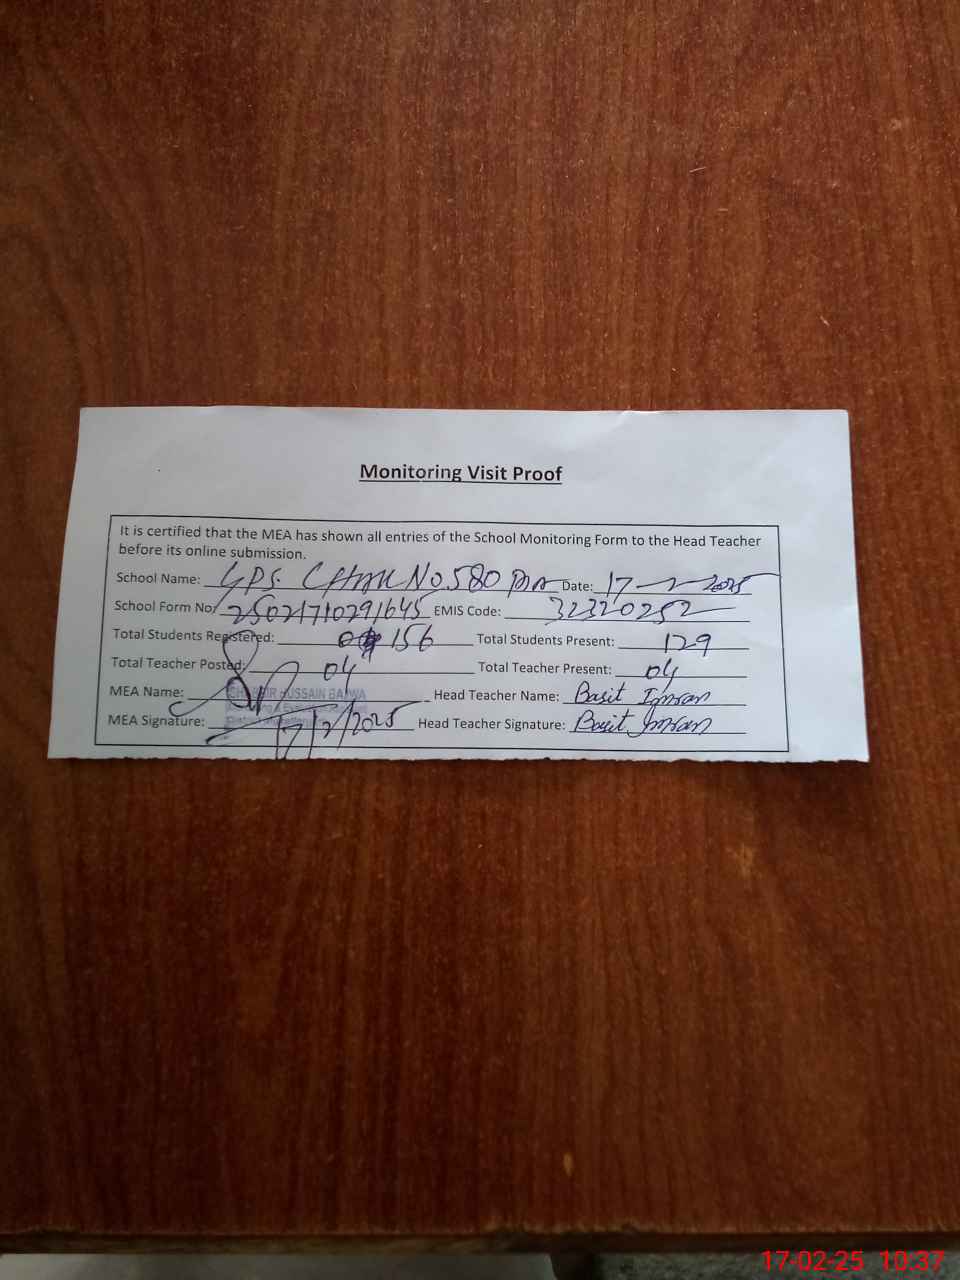 Monitoring Visit Proof
It is certified that the MEA has shown all entries of the School Monitoring Form to the Head Teacher
before its online submission.
School Name: GPS. Chak No. 580 Date: 17-2-2025
School Form No: 25021710291645 EMIS Code: 32320252
Total Students Registered: 156 Total Students Present: 129
Total Teacher Posted: 04 Total Teacher Present: 04
MEA Name: HUSSAIN BAJWA Head Teacher Name: Basit Imran
MEA Signature: 17/2/2025 Head Teacher Signature: Basit Imran
17-02-25 10:37